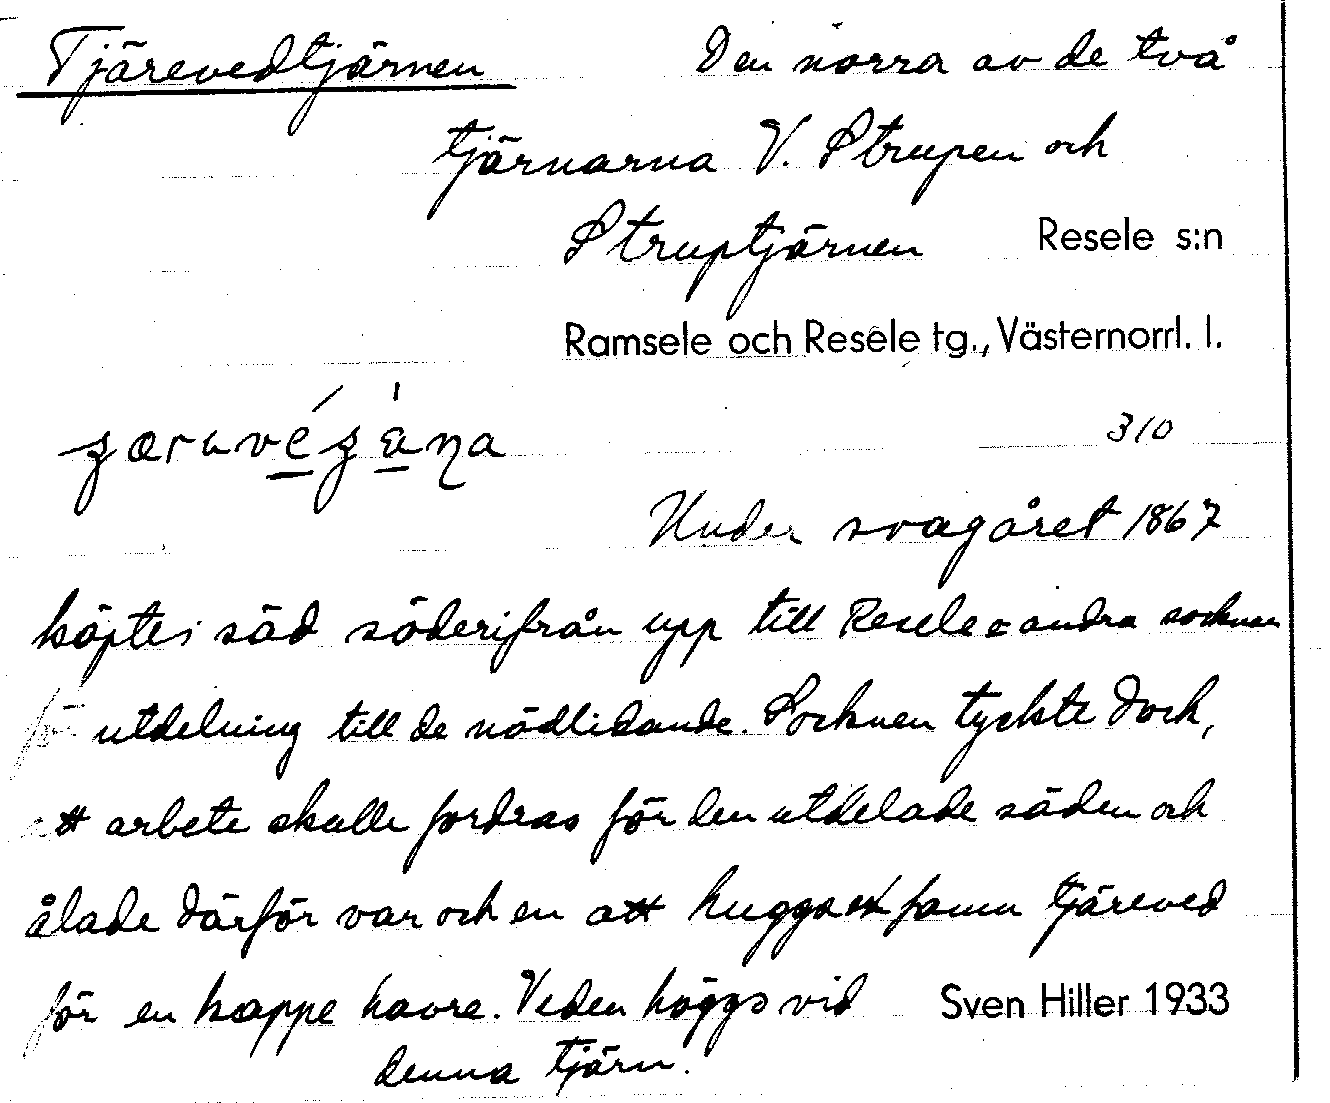 Tjärevedtjärnen Den norra av de två
tjärnarna V. Strupen och
Struptjärnen Resele s:n
Ramsele och Resele tg., Västernorrl. l.
310
Under svagåret 1867
köptes säd söderifrån upp till Resele o andra socknar
för utdelning till de nödlidande. Socknen tyckte dock,
att arbete skulle fordras för den utdelade säden och
ålade därför var och en att hugga ett famn tjäreved
för en kappe havre. Veden höggs vid Sven Hiller 1933
denna tjärn.